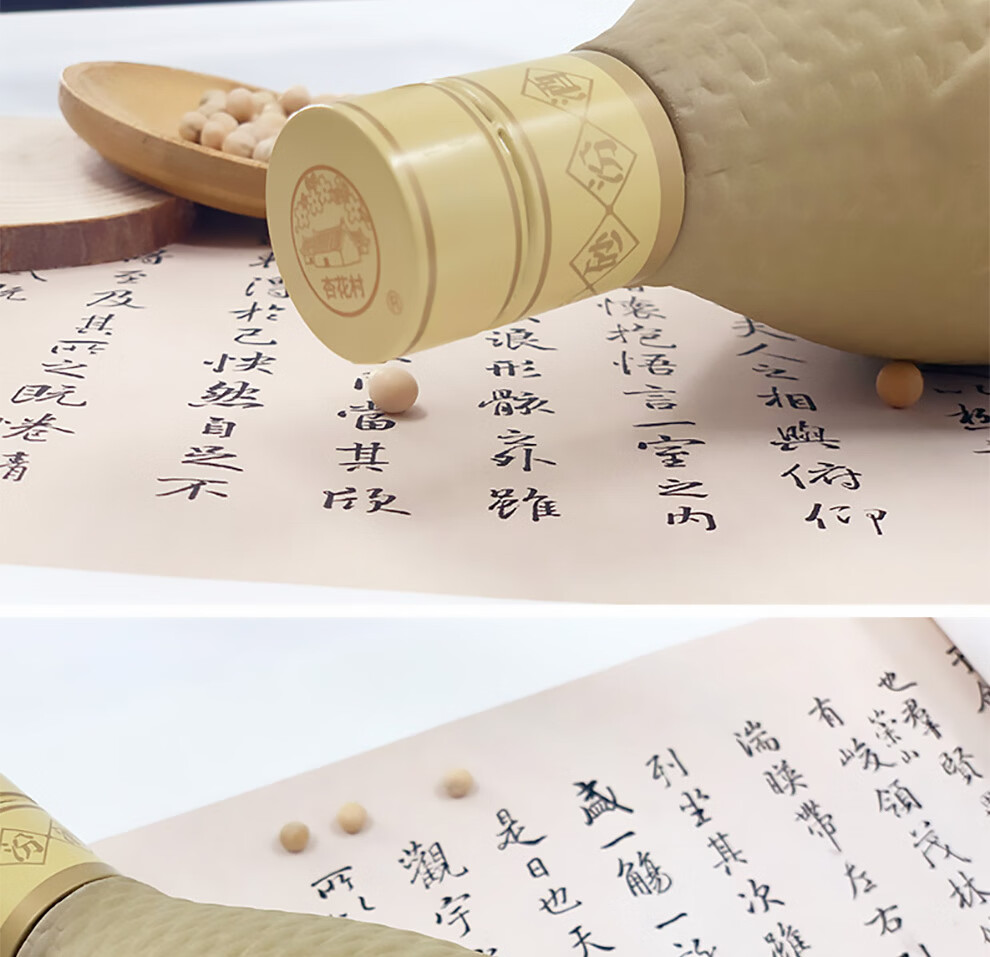 杏花村
®
汾
夫人之相與俯仰
懷抱悟言一室之內
浪形骸之外雖
當其欣
得於己快然自足不
至及其所之既
倦情
也羣賢
有崇山峻領茂林
湍暎帶左右
列坐其次雖
盛一觴一詠
是日也天
觀宇
所以
汾